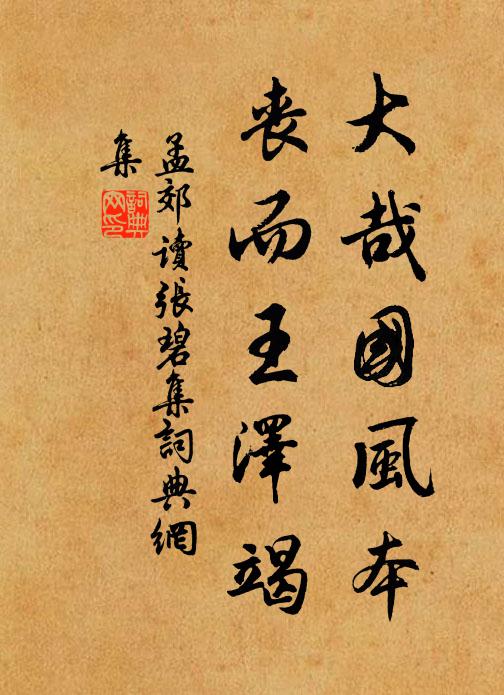 大哉國風本
喪而王澤竭
孟郊讀張碧集詞典網
集
詞典
网印